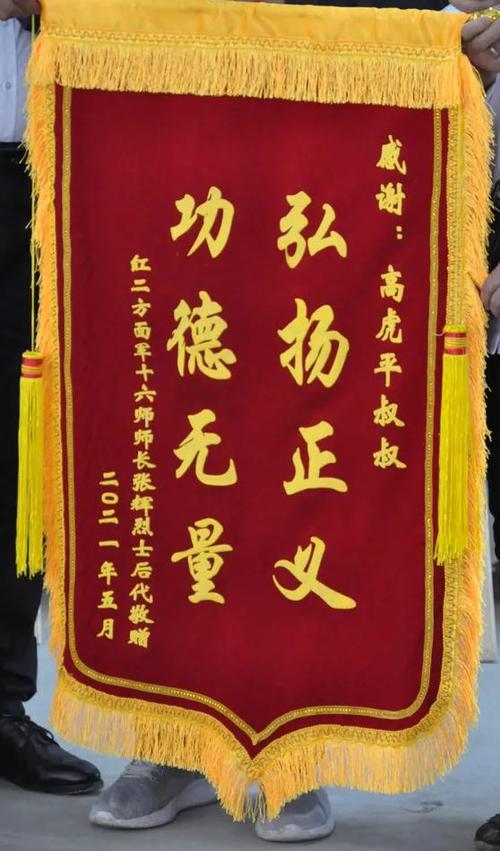 感谢：高虎平叔叔
弘扬正义
功德无量
红二方面军十六师师长张辉烈士后代敬赠
二〇二一年五月